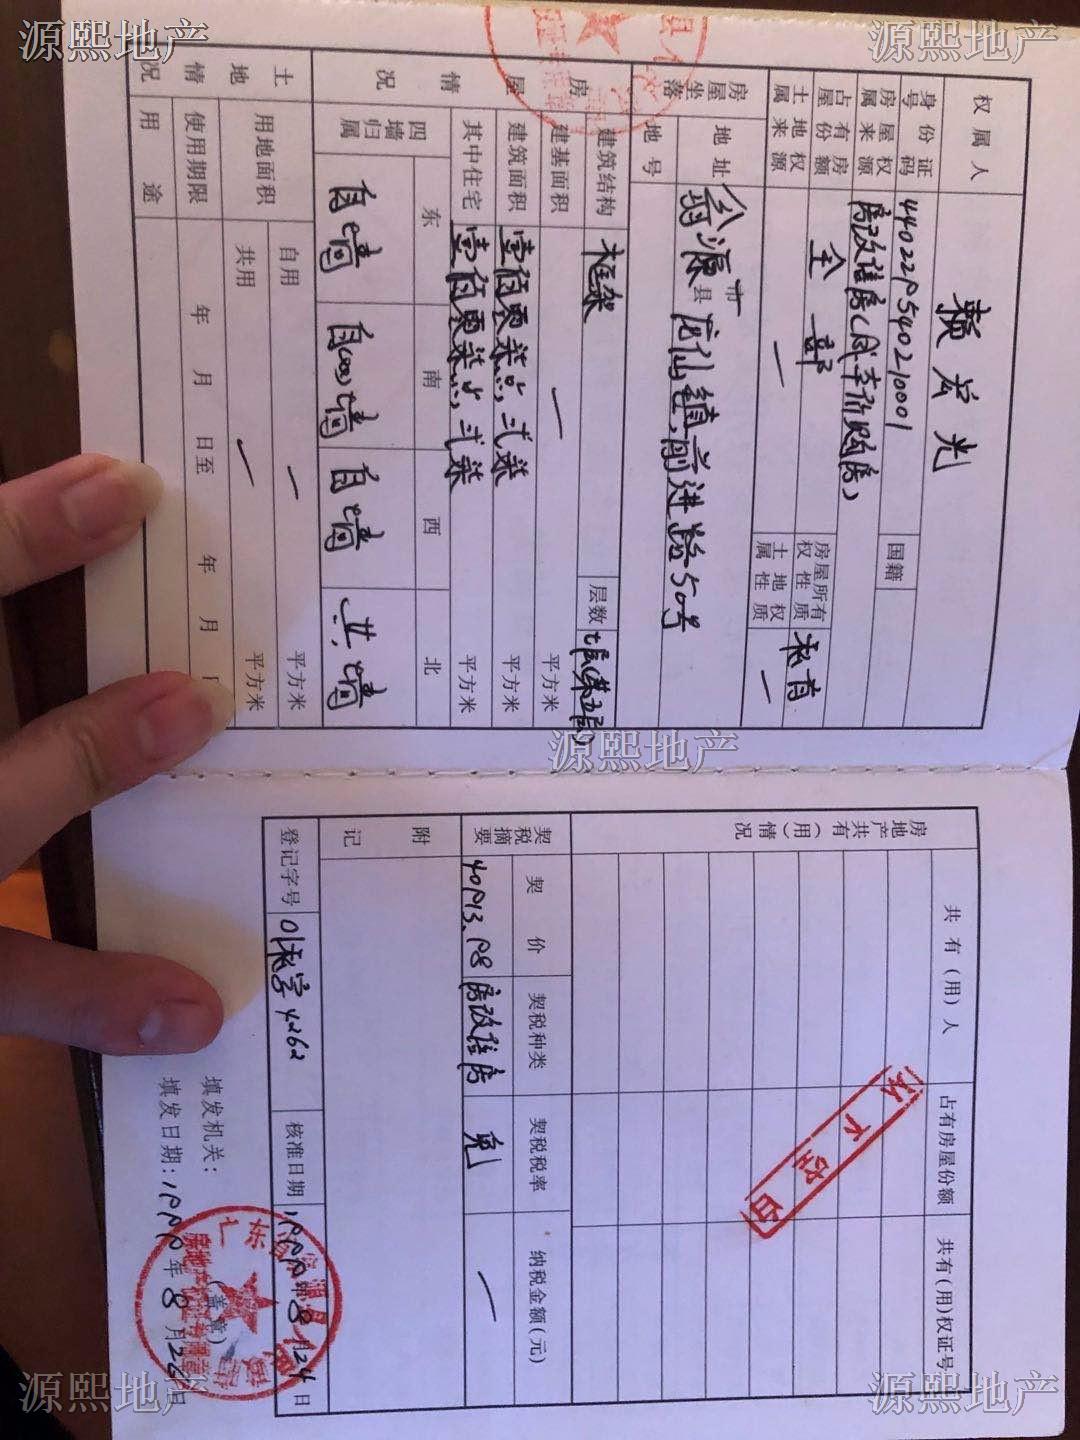 源熙地产
源熙地产
权属人 赖宏光
身份证号码 440229540210001 国籍
房屋权属来源 房改住房(成本价购房)
占有房屋份额 全部 房屋所有权性质 私有
土地权属来源 一 土地权属性质 一
房屋坐落 地址 翁源市县龙仙镇前进路50号
地号
房屋情况 建筑结构 框架 层数 七层(第五层)
建基面积 一 平方米
建筑面积 壹佰零柒点弍柒 平方米
其中住宅 壹佰零柒点弍柒 平方米
四墙归属 东 南 西 北
自墙 自墙 自墙 共墙
土地情况 用地面积 自用 一 平方米
共用 一 平方米
使用期限 年 月 日至 年 月 日
用途
源熙地产
房地产共有(用)情况 共有(用)人 占有房屋份额 共有(用)权证号
以下空白
契税摘要 契价 契税种类 契税税率 纳税金额(元)
40913.98 房改住房 免 一
附记
登记字号 01私字4262 核准日期 1999年8月24日
填发机关:
(盖章)
填发日期:1999年8月24日
源熙地产
源熙地产